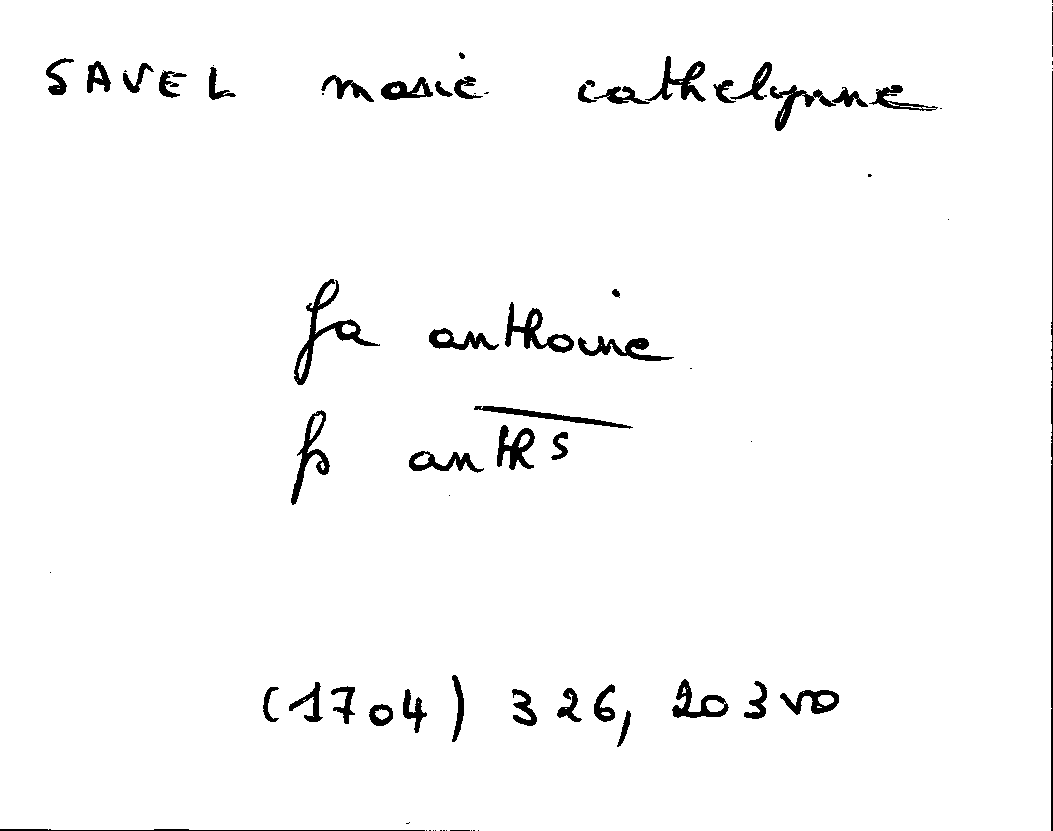 SAVEL marie cathelynne
fa anthoine
p anths
(1704) 326, 203 vo